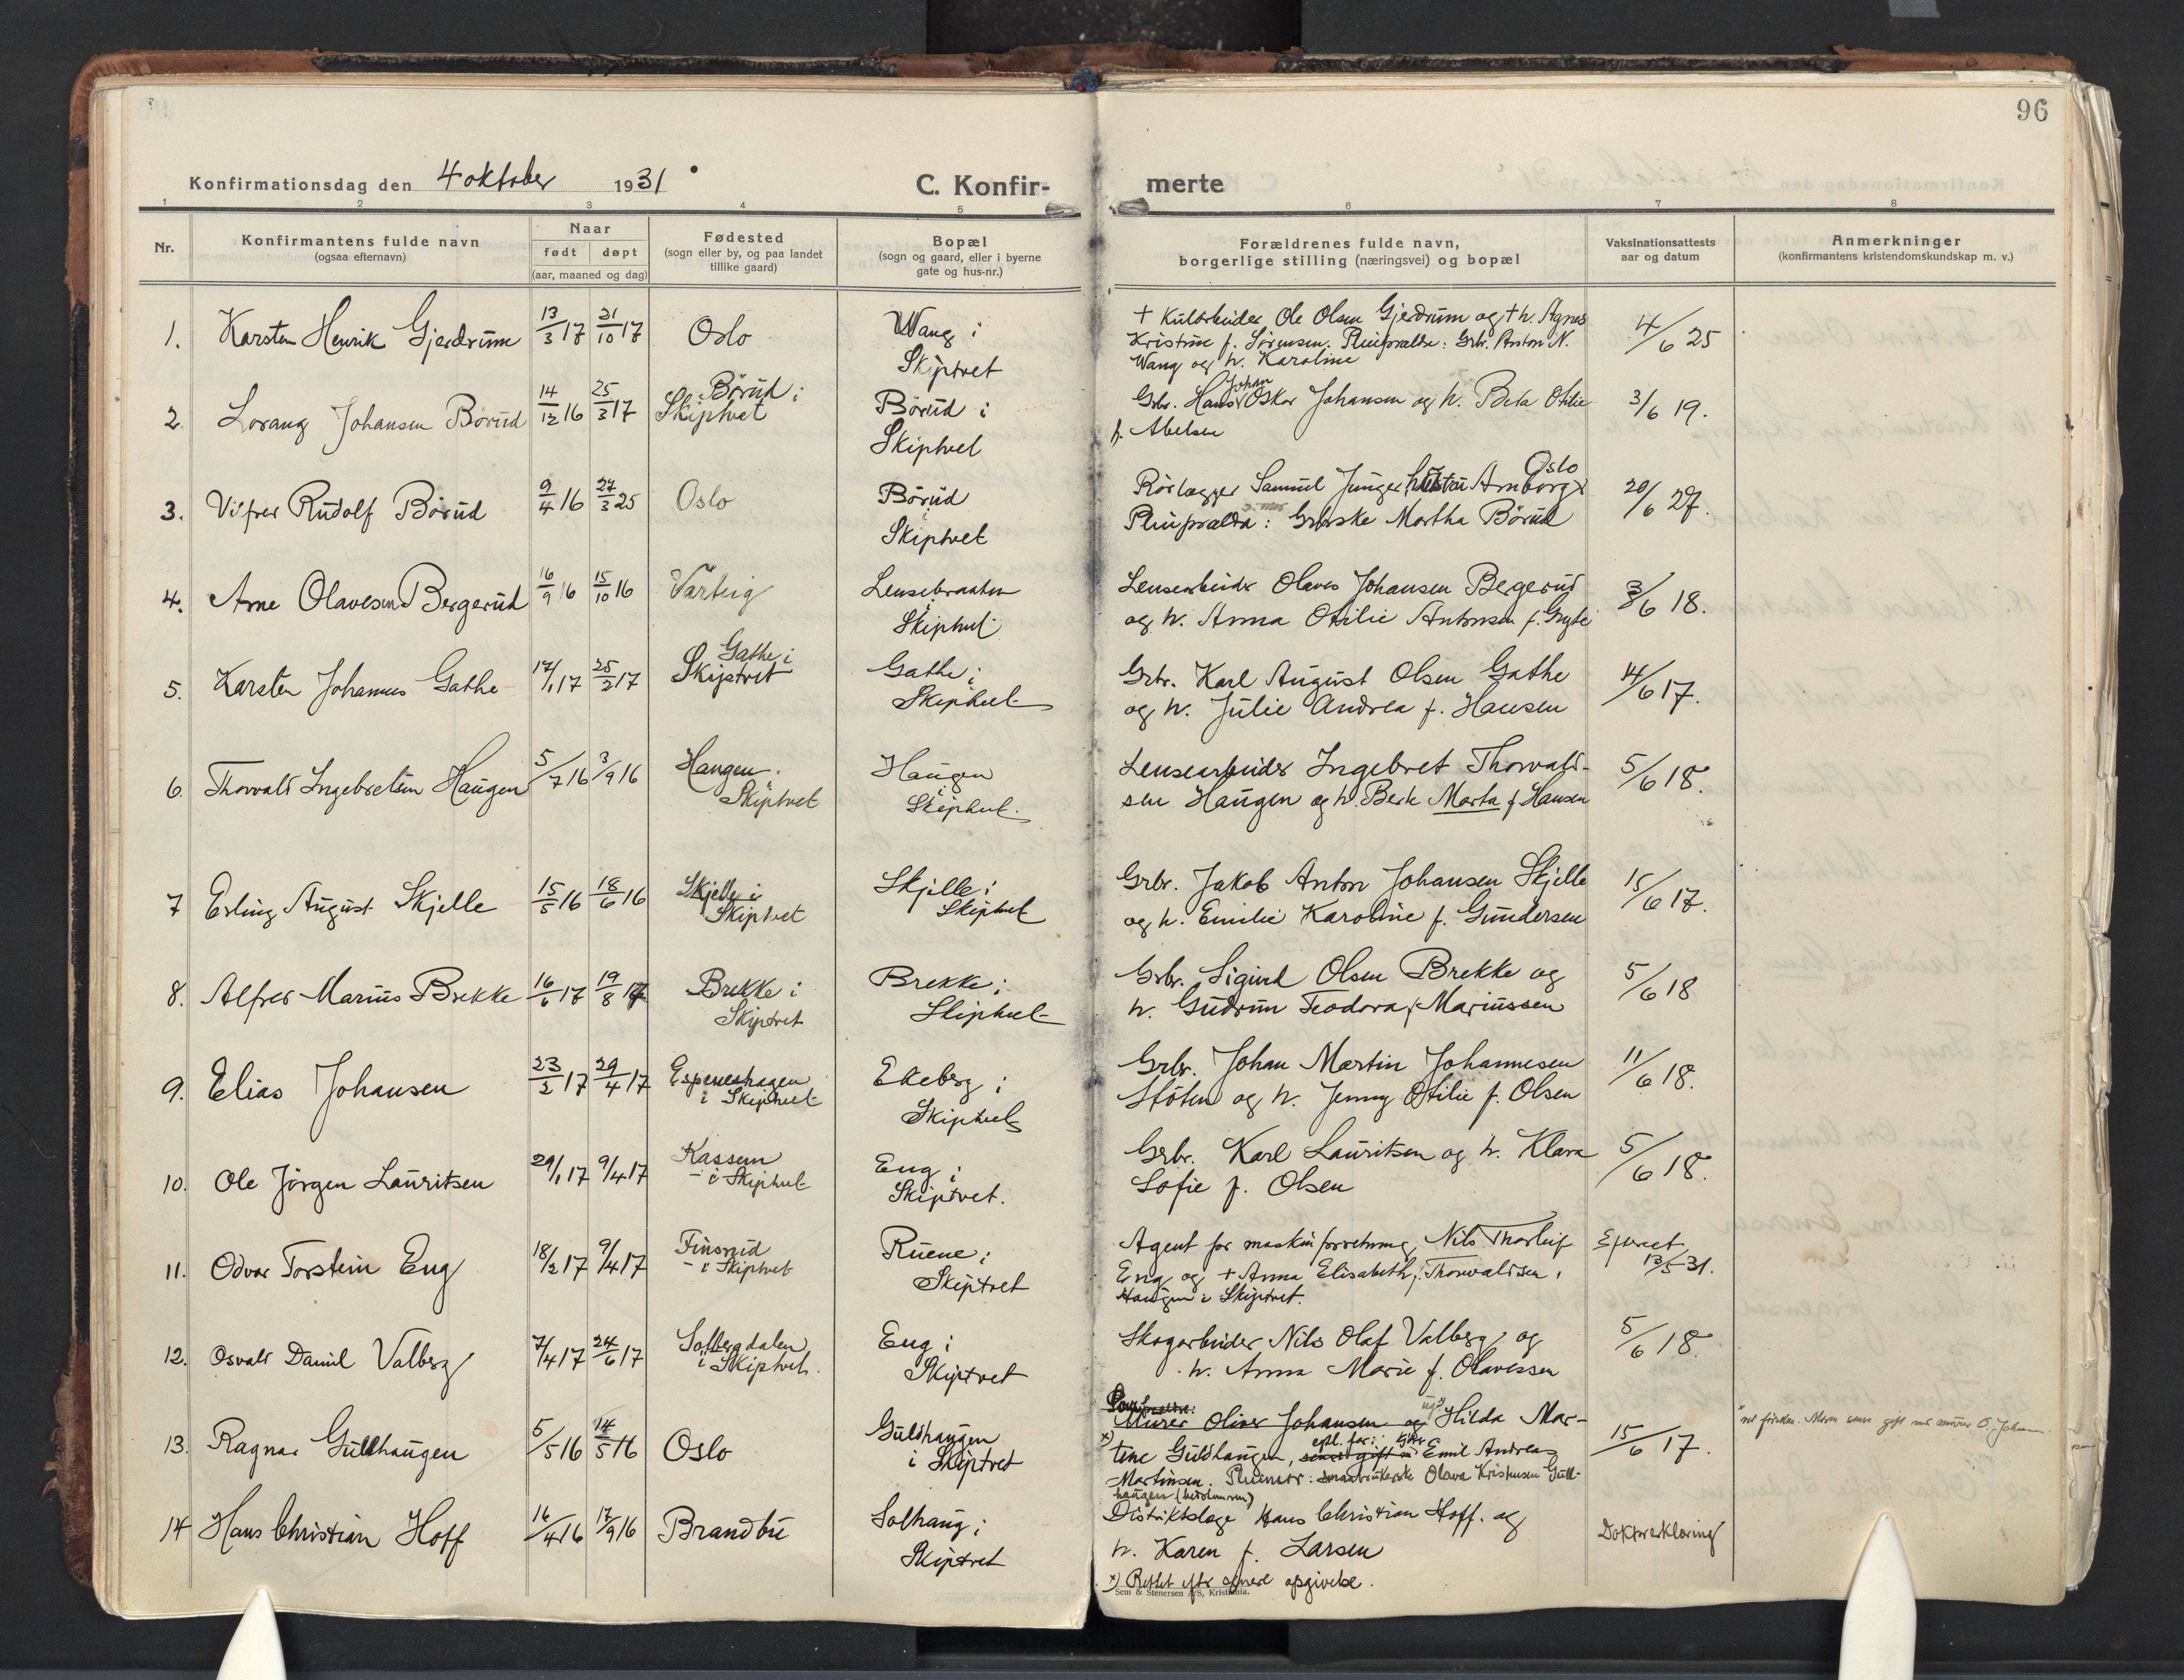 96
Konfirmationsdag den 4 oktober 1931
C. Konfir-
merte
1 2 3 4 5 6 7 8
Nr.
Konfirmantens fulde navn
(ogsaa efternavn)
Naar
født døpt
(aar, maaned og dag)
Fødested
(sogn eller by, og paa landet
tillike gaard)
Bopæl
(sogn og gaard, eller i byerne
gate og hus-nr.)
Forældrenes fulde navn,
borgerlige stilling (næringsvei) og bopæl
Vaksinationsattests
aar og datum
Anmerkninger
(konfirmantens kristendomskundskap m. v.)
1. Karsten Henrik Gjerdrum 13/3 17 21/10 17 Oslo Wang i
Skiptvet
+ Ole Olsen Gjerdrum og + h. Agnes
Kristine f. Sørensen. Pleieforældre: Grbr. Anton N.
Wang og h. Karoline
4/6 25
2. Lorang Johansen Børud 14/12 16 25/3 17 Børud i
Skiptvet
Børud i
Skiptvet
Grbr. Hans Johan Oskar Johansen og h. Beta Otilie
f. Abelsen
3/6 19.
3. Vilfred Rudolf Børud 9/4 16 27/3 25 Oslo Børud
i
Skiptvet
Rørlægger Samuel Arnborg Oslo
Pleieforældre: Grbrske Martha Børud
20/6 27.
4. Arne Olavesen Bergerud 16/9 16 15/10 16 Varteig Lensebraaten
i
Skiptvet
Lensearbeider Olaves Johansen Bergerud
og h. Anna Otilie Antonsen f.
3/6 18.
5. Karsten Johannes Gathe 17/1 17 25/2 17 Gathe i
Skiptvet
Gathe i
Skiptvet
Grbr. Karl August Olsen Gathe
og h. Julie Andrea f. Hansen
14/6 17.
6. Thorvald Ingebretsen Haugen 5/7 16 3/9 16 Haugen i
Skiptvet
Haugen
i
Skiptvet.
Lensearbeider Ingebret Thorvald-
sen Haugen og h. Marta f. Hansen
5/6 18.
7 Erling August Skjelle 15/5 16 18/6 16 Skjelle i
Skiptvet
Skjelle i
Skiptvet
Grbr. Jakob Anton Johansen Skjelle
og h. Emilie Karoline f. Gundersen
15/6 17.
8. Alfred Marius Brekke 16/6 17 19/8 17 Brekke i
Skiptvet
Brekke i
Skiptvet
Grbr. Sigurd Olsen Brekke og
h. Gudrun Teodora f. Mariussen
5/6 18
9. Elias Johansen 23/2 17 29/4 17 Espeneshagen
i Skiptvet
Ekeberg i
Skiptvet
Grbr. Johan Martin Johannesen
Støten og h. Jenny Otilie f. Olsen
11/6 18.
10. Ole Jørgen Lauritsen 29/1 17 9/4 17 Kassem
i Skiptvet
Eng i
Skiptvet.
Grbr. Karl Lauritsen og h. Klara
Sofie f. Olsen
5/6 18.
11. Odvar Torstein Eng 18/2 17 9/4 17 Finsrud
i Skiptvet
Ruene i
Skiptvet
Agent for maskinforretning Nils Thorleif
Eng og + Anna Elisabeth f. Thorvaldsen,
Haugen i Skiptvet.
13/5 31.
12. Osvald Daniel Valberg 7/4 17 24/6 17 Solbergdalen
i Skiptvet.
Eng i
Skiptvet
Skogarbeider Nils Olaf Valberg og
h. Anna Marie f. Olavessen
5/6 18.
13. Ragnar Guldhaugen 5/5 16 14/5 16 Oslo Guldhaugen
i Skiptvet
Murer Oliver Johansen og ug. Hilda Mar-
x) tine Guldhaugen, Emil Andreas
Martinsen. Pleiemor: smaabrukerske Olava Kristensen Guld-
haugen
15/6 17.
14 Hans Christian Hoff 16/4 16 17/9 16 Brandbu Solhaug i
Skiptvet
Distriktslæge Hans Christian Hoff og
h. Karen f. Larsen
Doktorerklæring
x) Rettet efter senere opgivelse.
Sem & Stenersen A/S, Kristiania.